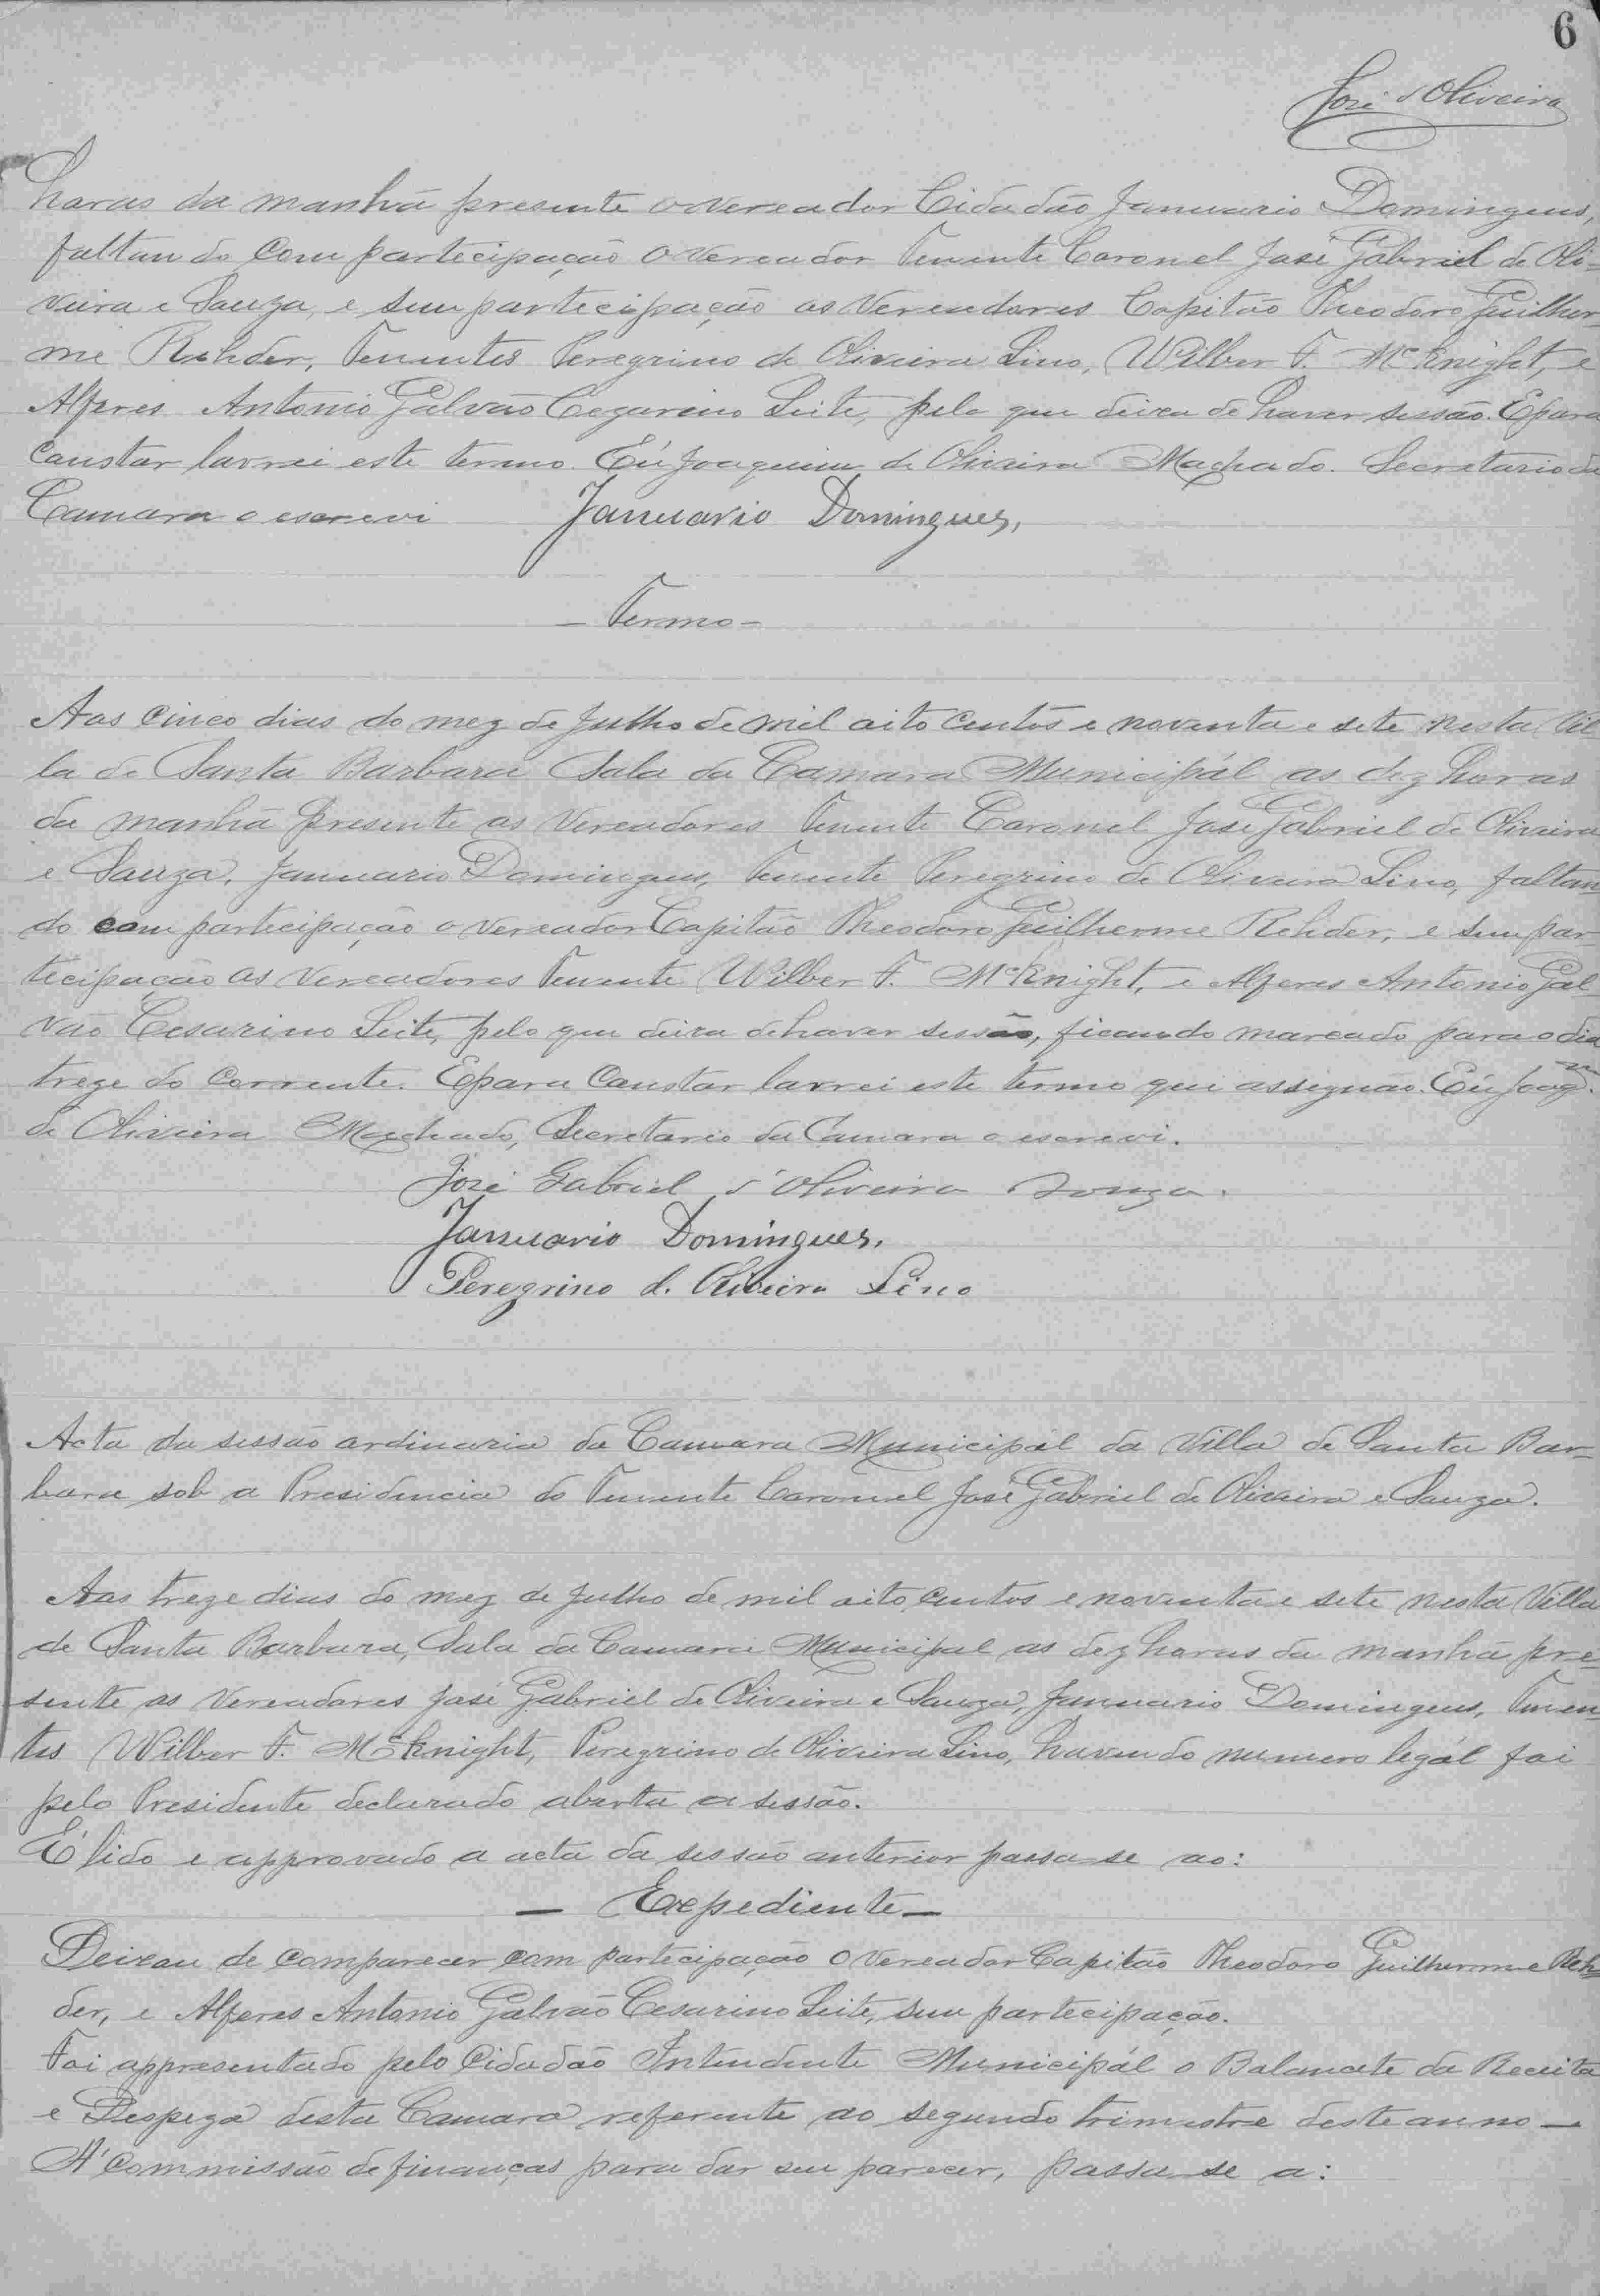 6
José d'Oliveira
horas da manhã presente o vereador Cidadão Januario Domingues,
faltando com participação o vereador Tenente Coronel José Gabriel de Oli-
veira e Souza, e sem participação os Vereadores Capitão Theodoro Guilher-
me Rehder, Tenentes Peregrino de Oliveira Lino, Wilber F. McKnight, e
Alferes Antonio Galvão Cezarino Leite, pelo que deixa de haver sessão. E para
Constar lavrei este termo. Eú Joaquim de Oliveira Machado. Secretario da
Camara o escrevi Januario Domingues,
- Termo -
Aos cinco dias do mez de Julho de mil oito centos e noventa e sete nesta Vil-
la de Santa Barbara Sala da Camara Municipál as dez horas
da manhã presente os Vereadores Tenente Coronel José Gabriel de Oliveira
e Souza, Januario Domingues, Tenente Peregrino de Oliveira Lino, faltan-
do com participação o vereador Capitão Theodoro Guilherme Rehder, e sem par-
tecipação os Vereadores Tenente Wilber F. McKnight, e Alferes Antonio Gal-
vão Cesarino Leite, pelo que deixa de haver sessão, ficando marcado para o dia
treze do corrente. E para Constar lavrei este termo que assignão. Eú Joaqm.
de Oliveira Machado, Secretario da Camara o escrevi.
José Gabriel d'Oliveira Souza.
Januario Domingues.
Peregrino d. Oliveira Lino
Acta da sessão ordinaria da Camara Municipál da Villa de Santa Bar-
bara sob a Presidencia do Tenente Coronel José Gabriel de Oliveira e Souza.
Aos treze dias do mez de Julho de mil oito centos e noventa e sete nesta Villa
de Santa Barbara, Sala da Camara Municipal as dez horas da manhã pre-
sente os Vereadores José Gabriel de Oliveira e Souza, Januario Domingues, Tenen-
tes Wilber F. McKnight, Peregrino de Oliveira Lino, havendo numero legál foi
pelo Presidente declarado aberta a sessão.
É lido e approvado a acta da sessão anterior passa-se ao:
— Expediente —
Deixou de comparecer com participação o vereador Capitão Theodoro Guilherme Reh-
der, e Alferes Antonio Galvão Cesarino Leite, sem partecipação.
Foi appresentado pelo Cidadão Intendente Municipál o Balancete da Receita
e Despeza desta Camara referente ao segundo trimestre deste anno —
Á Commissão de finanças para dar seu parecer, passa-se a: